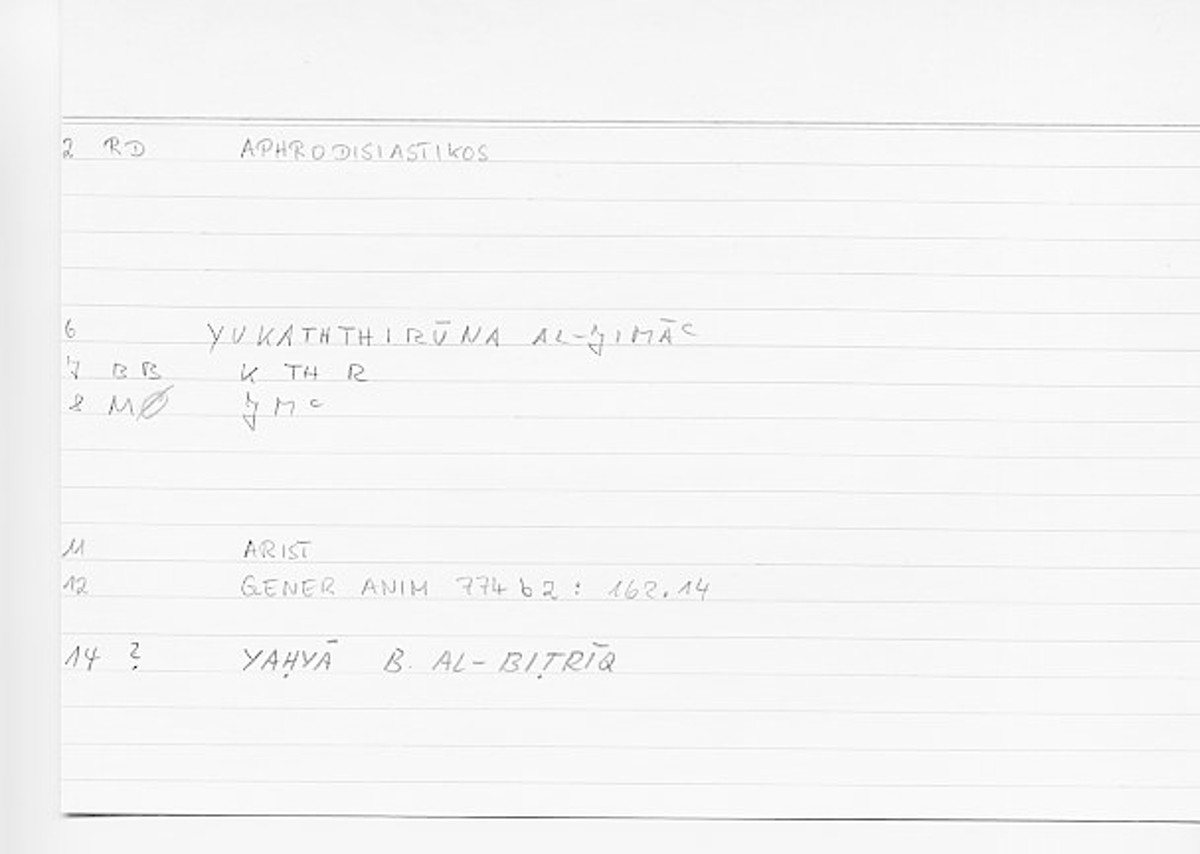 2 RD APHRODISIASTIKOS
6 YUKATHTHIRŪNA AL-ǦIMĀʿ
7 BB K TH R
8 MØ Ǧ M ʿ
11 ARIST
12 GENER ANIM 774 b 2 : 162.14
14 ? YAḤYĀ B. AL-BIṬRĪQ